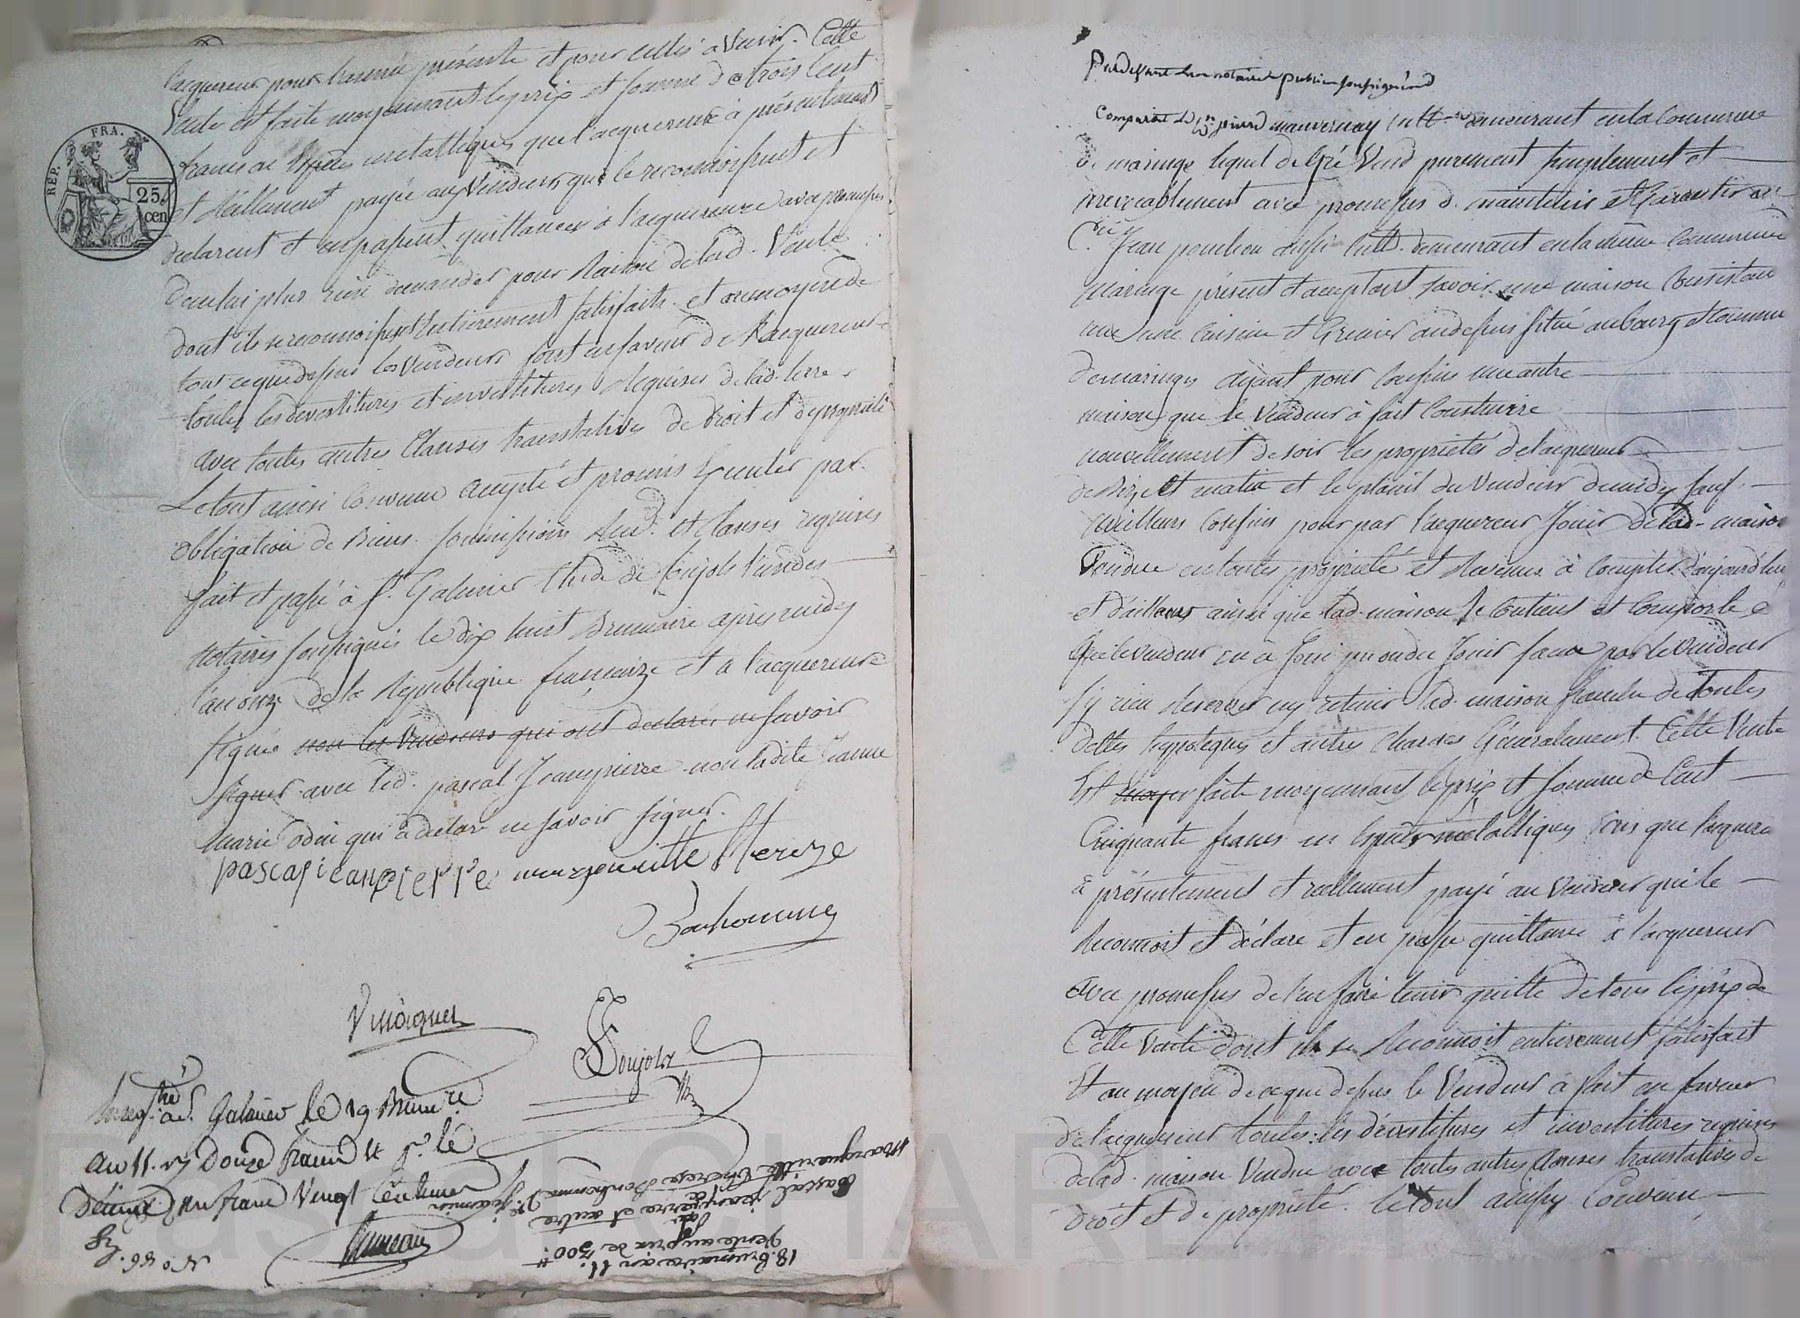 l'acquereur pour l'année présente et pour celles a Venir. Cette
Vente est faite moyennant le prix et somme de trois Cent
francs en espèces metalliques que l'acquereure à présentement
et réellement payée aux Vendeurs qui le reconnoissent et
declarent et en passent quittance à l'acquereure avec promesses
de ne lui plus rien demander pour Raison de lad. Vente
dont ils se reconnoissent Entierement satisfaits. et au moyen de
tout ce que dessus les Vendeurs font en faveur de l'acquereure
toutes les devestitures et investitures Requises de lad. terre
avec toutes autres Clauses translatives de Droit et de propriété
Le tout ainsi Convenu accepté et promis Executer par
obligation de Biens soumissions Rend. et Clauses requises
fait et passé à St. Galmier Etude de Soujols l'un des
Notaires soussignés le dix huit Brumaire après midy
l'an onze de la République francaize et a l'acquereure
signé non les Vendeurs qui ont declaré ne savoir
signer avec led. pascal Jeanpierre non ladite Jeanne
Marie odin qui a déclaré ne savoir signer.
pascal jeanpierre margueritte Thereze
Bonhomme
Soujols
Enreg.tré à S. Galmier le 19 Brum.re
an 11. Douze francs
Décime Un franc Vingt Centimes
REP. FRA.
25 cen
18. Brumaire an 11.
Vente au prix de 300.
par
pascal jeanpierre et autre
à
Marguerite Thereze Bonhomme
Pardevant le notaire public soussigné
Comparut le C.en pierre mauvernay Cult. demeurant en la Commune
de maringe lequel de Gré Vend purement simplement et
irrevocablement avec promesses de maintenir et Garantir au
C.en Jean ponchon aussi Cult. demeurant en la même Commune
Maringe présent et acceptant savoir une maison Consistant
en une Cuisine et Grenier au dessus située au bourg et Commune
de maringes ayant pour Confins une autre
maison que le Vendeur à fait Construire
nouvellement de soir les proprietés de l'acquereur
de Bize et matin et le plassit du Vendeur de midy sauf
meilleurs Confins pour par l'acquereur Jouir de lad. maison
Vendue en toutes propriété et Revenus à Compter d'aujourd'hui
et d'ailleurs ainsi que lad. maison se Contient et Comporte
que le Vendeur en a Joui ou du Jouir sans par le Vendeur
s'y rien Reserver ny retenir lad. maison franche de Toutes
dettes hypoteques et autres Charges Généralement. Cette Vente
Est faite moyennant le prix et somme de Cent
Cinquante francs en Espèces metalliques que l'acquereur
à présentement et réellement payé au Vendeur qui le
Reconnoit et déclare et en passe quittance à l'acquereur
avec promesses de l'en faire tenir quitte de tous le prix de
Cette Vente dont il se Reconnoit entierement satisfait
Et au moyen de ce que dessus le Vendeur à fait en faveur
de l'acquereur toutes les dévestitures et investitures requises
de lad. maison Vendue avec toutes autres Clauses translatives de
droit et de propriété. Le tout ainsy Convenu